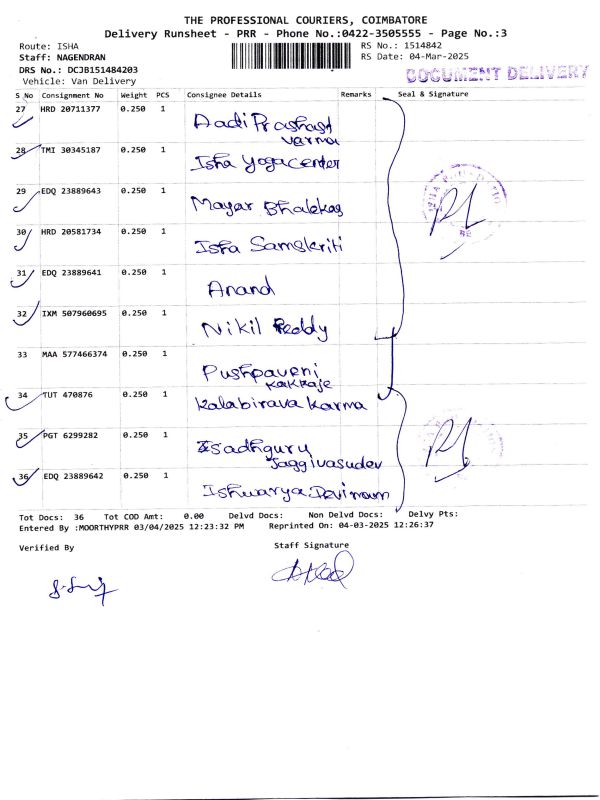 THE PROFESSIONAL COURIERS, COIMBATORE
Delivery Runsheet - PRR - Phone No.:0422-3505555 - Page No.:3
Route: ISHA RS No.: 1514842
Staff: NAGENDRAN RS Date: 04-Mar-2025
DRS No.: DCJB151484203
DOCUMENT DELIVERY
Vehicle: Van Delivery
S No Consignment No Weight PCS Consignee Details Remarks Seal & Signature
27 HRD 20711377 0.250 1 Aadi Prashast
varma
28 TMI 30345187 0.250 1 Isha yoga center
29 EDQ 23889643 0.250 1 Mayar Bhalekag
30 HRD 20581734 0.250 1 Isha Samskriti
31 EDQ 23889641 0.250 1 Anand
32 IXM 507960695 0.250 1 Nikil Reddy
33 MAA 577466374 0.250 1 Pushpaveni
kakkaje
34 TUT 470876 0.250 1 kalabirava karma
35 PGT 6299282 0.250 1 sadhguru
Jaggivasudev
36 EDQ 23889642 0.250 1 Ishwarya Devi
Tot Docs: 36 Tot COD Amt: 0.00 Delvd Docs: Non Delvd Docs: Delvy Pts:
Entered By :MOORTHYPRR 03/04/2025 12:23:32 PM Reprinted On: 04-03-2025 12:26:37
Verified By Staff Signature